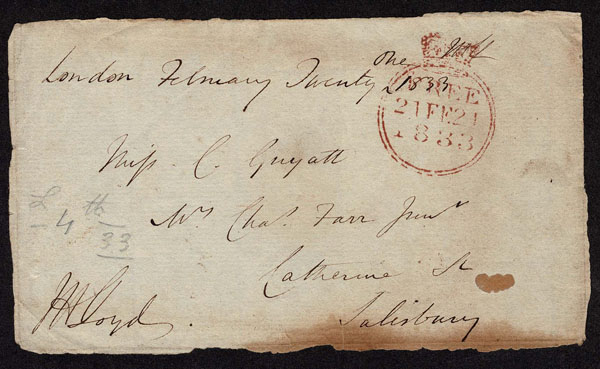 London February Twenty one 1833
FREE
21 FE 21
1833
Miss C. Guyatt
Mrs Chas. Farr Junr
Catherine St
Salisbury
4th
33